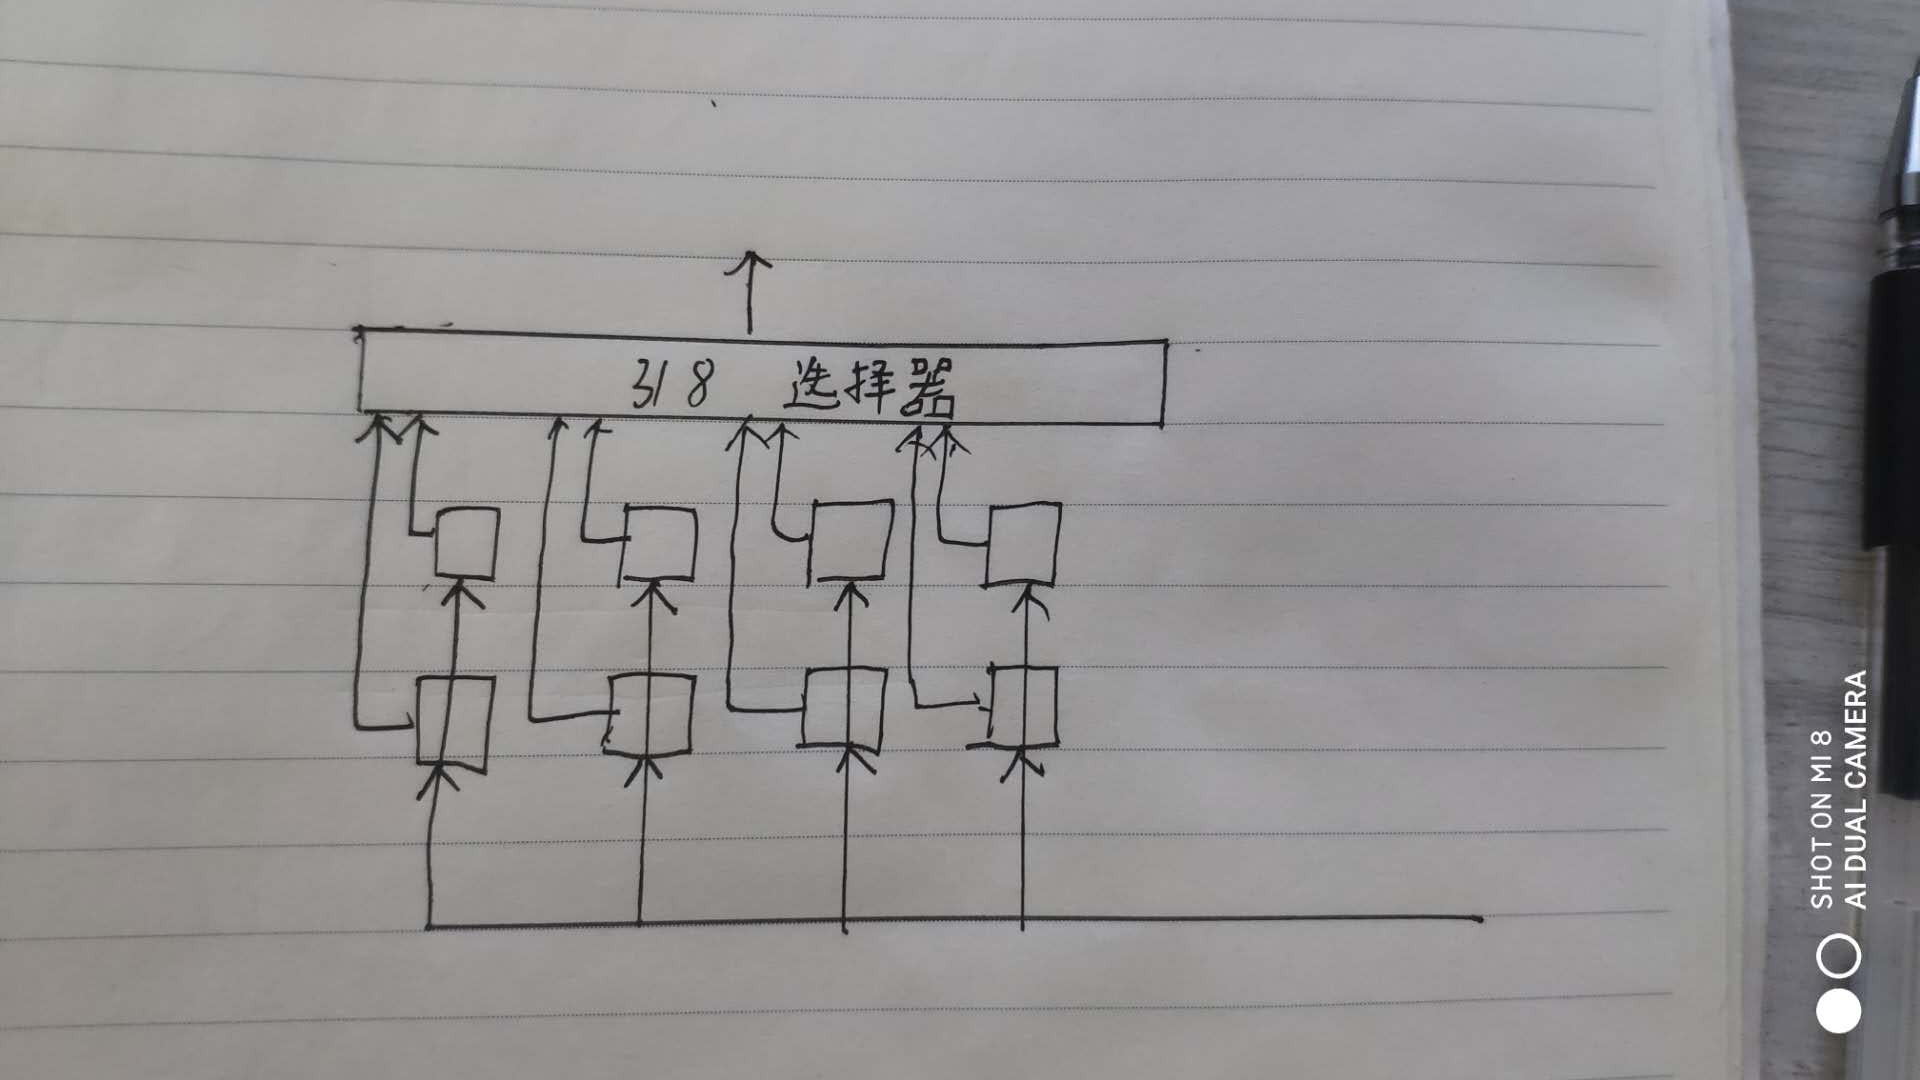 318 选择器
SHOT ON MI 8
AI DUAL CAMERA